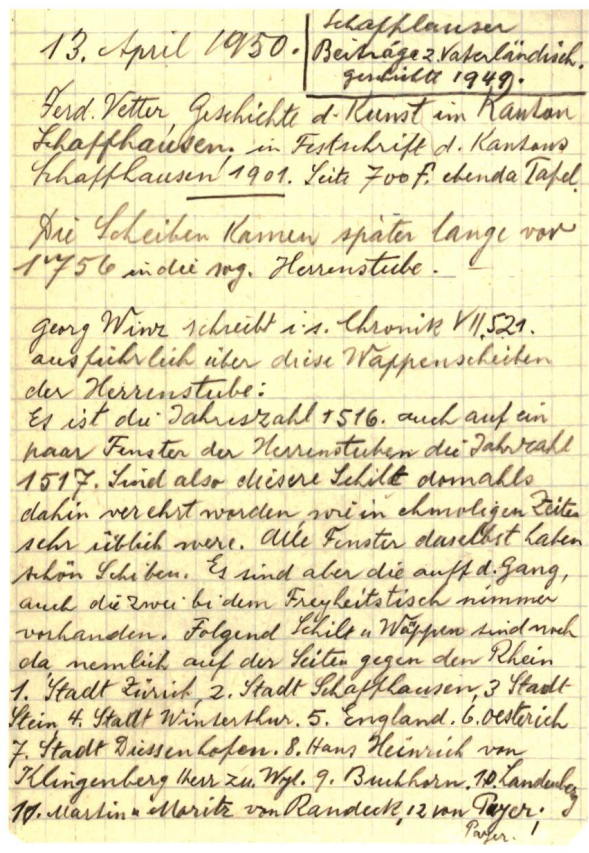 13. April 1950.
Schaffhauser
Beiträge z. Vaterländisch.
geschichte 1949.
Ferd. Vetter Geschichte d. Kunst im Kanton
Schaffhausen. in Festschrift d. Kantons
Schaffhausen 1901. Seite 700 f. ebenda Tafel
Die Scheiben kamen später lange vor
1756 in die sog. Herrenstube.
Georg Winz schreibt i. s. Chronik VII, 521.
ausführlich über diese Wappenscheiben
der Herrenstube:
Es ist die Jahreszahl 1516. auch auf ein
paar Fenster der Herrenstuben die Jahrzahl
1517. Sind also diesere Schilt domahls
dahin verehrt worden, wie in ehmoligen Zeiten
sehr üblich were. Alle Fenster daselbst haben
schön Schiben. Es sind aber die auff d. Gang,
auch die zwei bi dem Freyheitstisch nimmer
vorhanden. Folgend Schilt u Wappen sind noch
da nemlich auf der Seiten gegen den Rhein
1. Stadt Zürich, 2. Stadt Schaffhausen, 3 Stadt
Stein 4. Statt Winterthur. 5. England. 6. Oesterich
7. Stadt Diessenhofen. 8. Hans Heinrich von
Klingenberg Herr zu Wyl. 9. Buchhorn. 10. Landenberg
11. Martin u Moritz von Randeck, 12 von Payer.
Payer. !